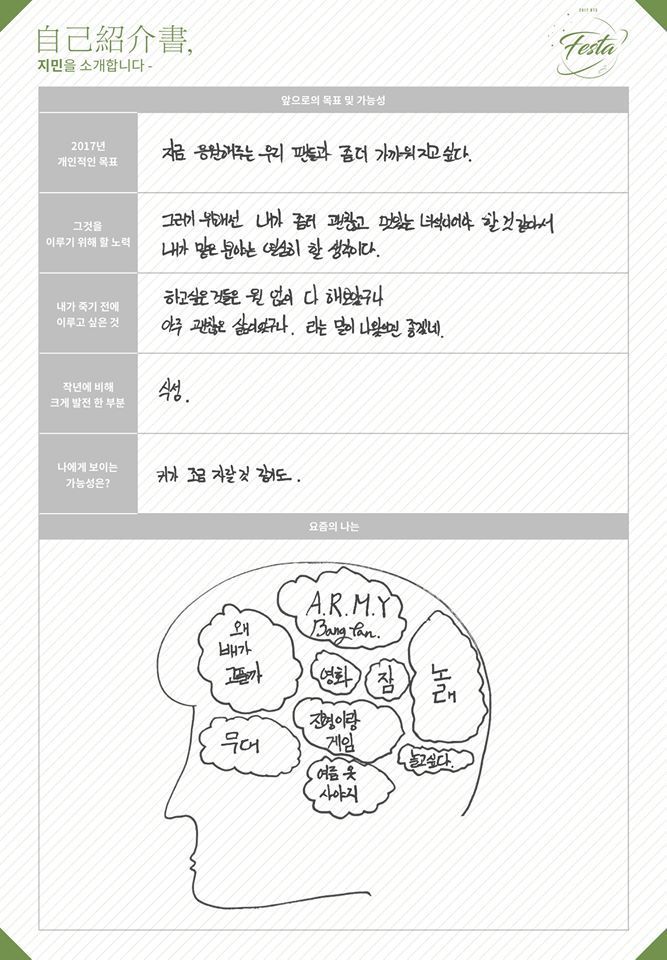 自己紹介書,
지민을 소개합니다 -
2017 BTS
Festa
앞으로의 목표 및 가능성
2017년
개인적인 목표
지금 응원해주는 우리 팬들과 좀더 가까워지고 싶다.
그것을
이루기 위해 할 노력
그러기 위해선 내가 좀더 괜찮고 멋있는 녀석이어야 할 것 같아서
내가 맡은 분야는 열심히 할 생각이다.
내가 죽기 전에
이루고 싶은 것
하고싶은것들은 원 없이 다 해보았구나
아주 괜찮은 삶이었구나. 라는 말이 나왔으면 좋겠네.
작년에 비해
크게 발전 한 부분
식성.
나에게 보이는
가능성은?
키가 조금 자랄 것 같기도.
요즘의 나는
A.R.M.Y
Bang Tan.
왜
배가
고플까
영화
잠
노래
무대
진형이랑
게임
놀고싶다.
여름 옷
사야지